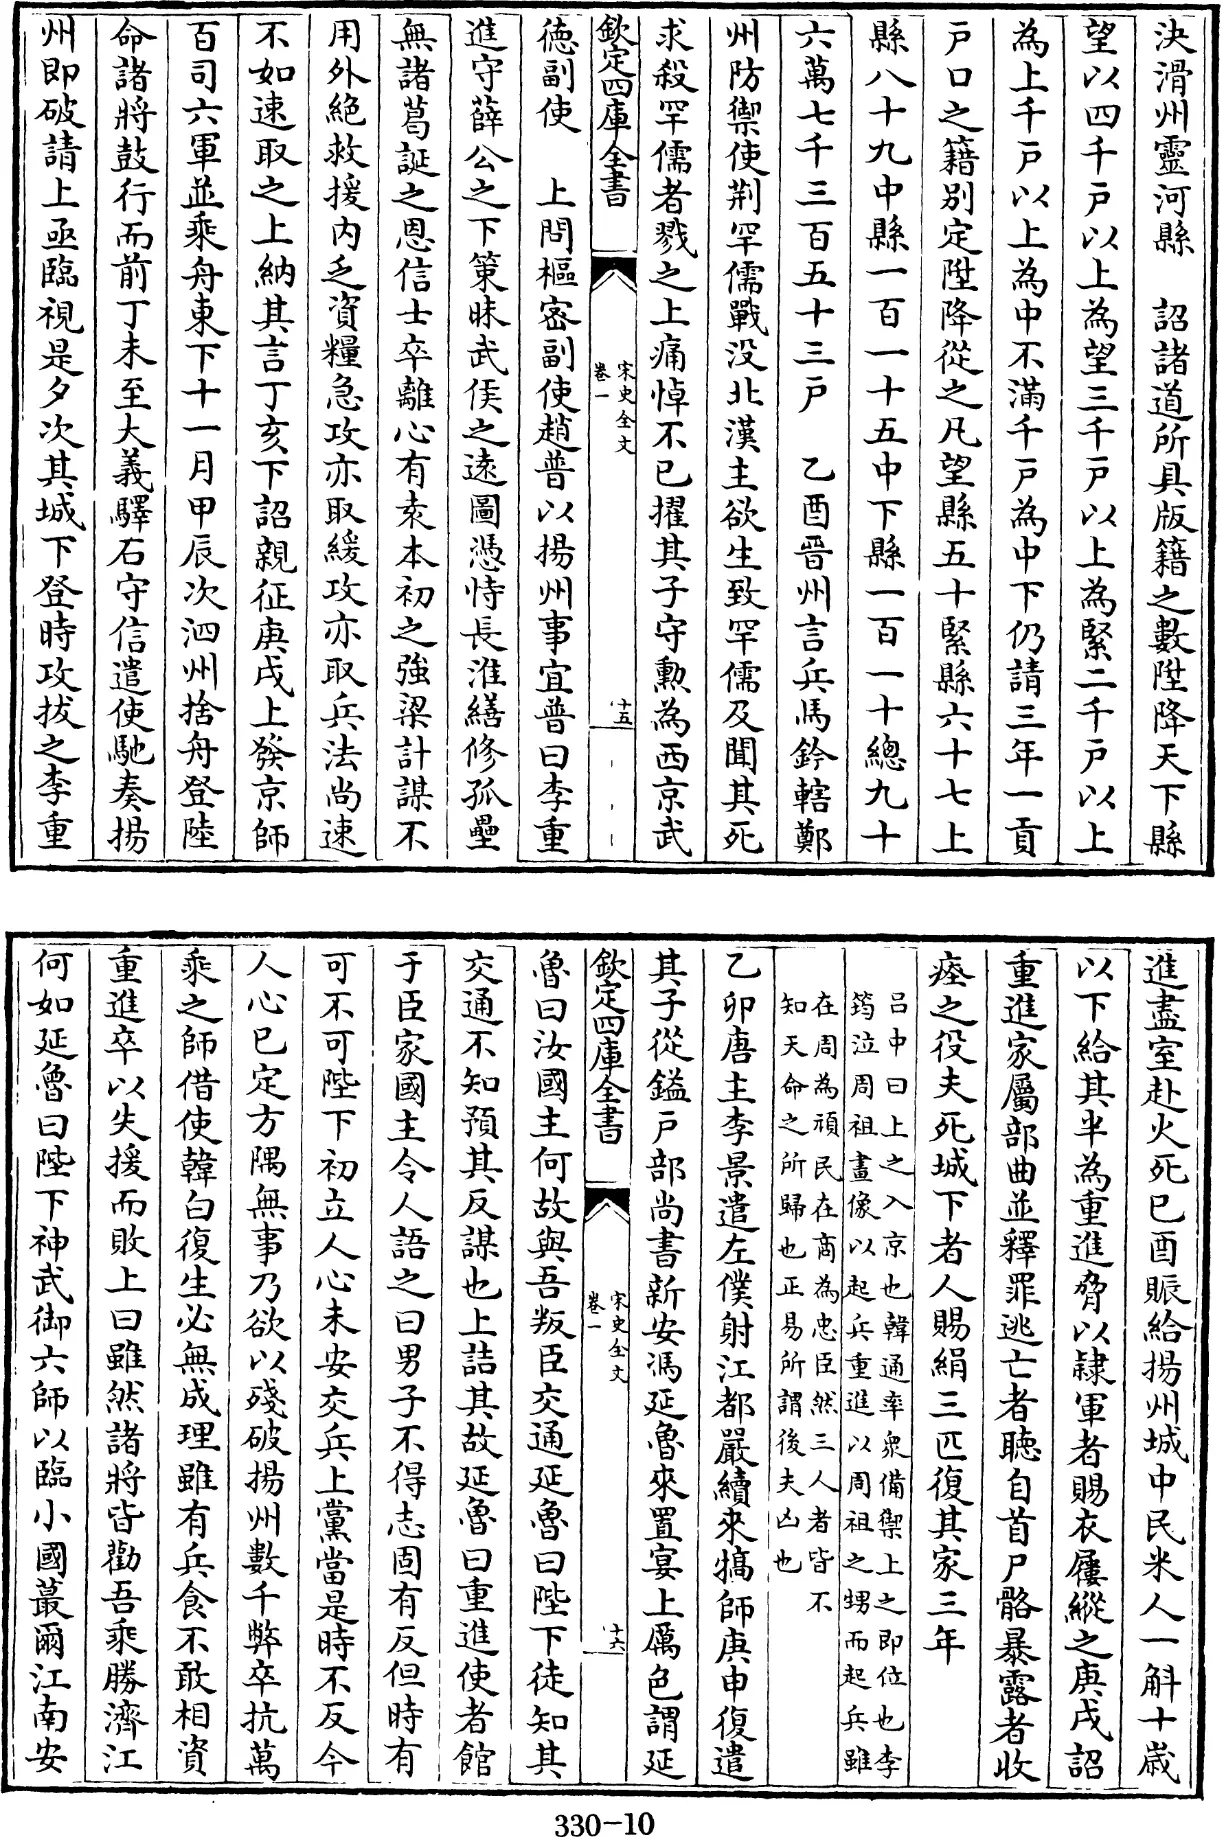 決滑州靈河縣　詔諸道所具版籍之數陞降天下縣
望以四千戸以上為望三千戸以上為緊二千戸以上
為上千戸以上為中不滿千戸為中下仍請三年一貢
戸口之籍別定陞降從之凡望縣五十緊縣六十七上
縣八十九中縣一百一十五中下縣一百一十總九十
六萬七千三百五十三戸　乙酉晉州言兵馬鈐轄鄭
州防禦使荆罕儒戰没北漢主欲生致罕儒及聞其死
求殺罕儒者戮之上痛悼不已擢其子守勲為西京武
欽定四庫全書
宋史全文
卷一
十五
徳副使　上問樞密副使趙普以揚州事宜普曰李重
進守薛公之下策昧武侯之遠圖憑恃長淮繕修孤壘
無諸葛誕之恩信士卒離心有袁本初之強梁計謀不
用外絶救援内乏資糧急攻亦取緩攻亦取兵法尚速
不如速取之上納其言丁亥下詔親征庚戌上發京師
百司六軍並乘舟東下十一月甲辰次泗州捨舟登陸
命諸將鼓行而前丁未至大義驛石守信遣使馳奏揚
州即破請上亟臨視是夕次其城下登時攻拔之李重
進盡室赴火死已酉賑給揚州城中民米人一斛十歳
以下給其半為重進脅以隷軍者賜衣屨縱之庚戌詔
重進家屬部曲並釋罪逃亡者聴自首尸骼暴露者收
瘞之役夫死城下者人賜絹三匹復其家三年
吕中曰上之入京也韓通率衆備禦上之即位也李
筠泣周祖畫像以起兵重進以周祖之甥而起兵雖
在周為頑民在商為忠臣然三人者皆不
知天命之所歸也正易所謂後夫凶也
乙卯唐主李景遣左僕射江都嚴續來犒師庚申復遣
其子從鎰戸部尚書新安馮延魯來置宴上厲色謂延
欽定四庫全書
宋史全文
卷一
十六
魯曰汝國主何故與吾叛臣交通延魯曰陛下徒知其
交通不知預其反謀也上詰其故延魯曰重進使者館
于臣家國主令人語之曰男子不得志固有反但時有
可不可陛下初立人心未安交兵上黨當是時不反今
人心已定方隅無事乃欲以殘破揚州數千弊卒抗萬
乘之師借使韓白復生必無成理雖有兵食不敢相資
重進卒以失援而敗上曰雖然諸將皆勸吾乘勝濟江
何如延魯曰陛下神武御六師以臨小國蕞爾江南安
330-10